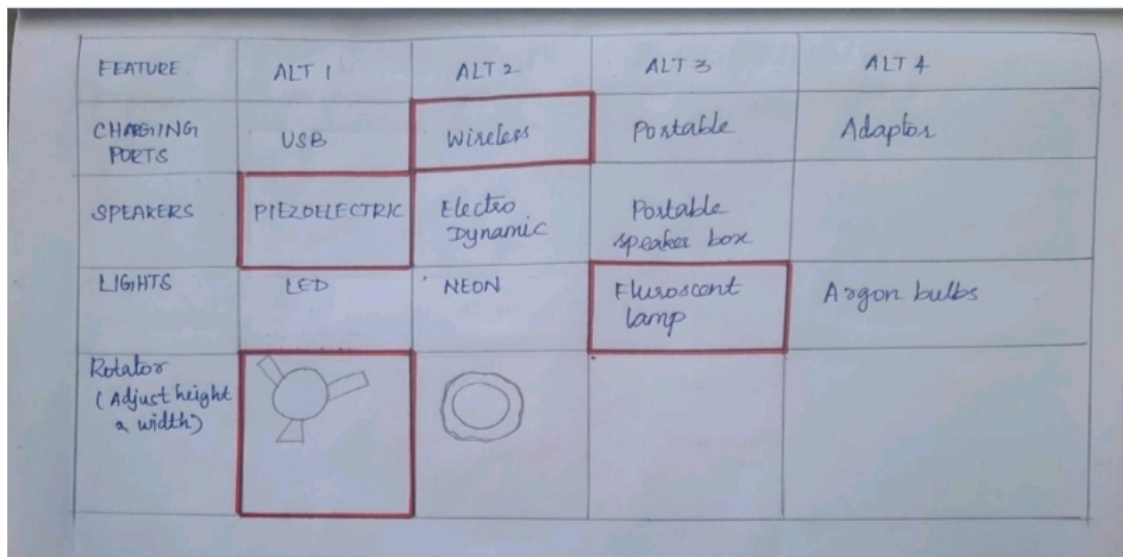 FEATURE ALT 1 ALT 2 ALT 3 ALT 4
CHARGING
PORTS
USB Wireless Portable Adaptor
SPEAKERS PIEZOELECTRIC Electro
Dynamic
Portable
speaker box
LIGHTS LED NEON Fluroscent
lamp
Argon bulbs
Rotator
(Adjust height
& width)